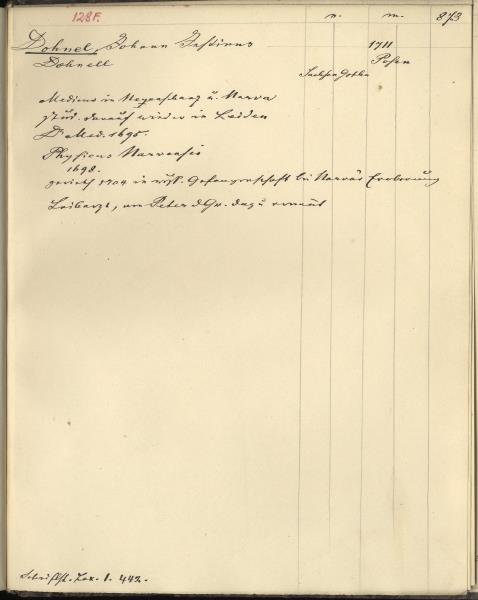 128F. n. m. 873
Dohnel, Johann Justinus 1711
Dohnell Posen
Sachsen Gotha
Medicus in u. Narva
stud. darauf wieder in Leiden
Dr Med. 1695.
Physicus Narvensis
1698.
gerieth 1704 in russ. Gefangenschaft bei Narvas Eroberung
Leibarzt, von Peter d. Gr. dazu ernannt
Schriftst. Lex. I. 442.